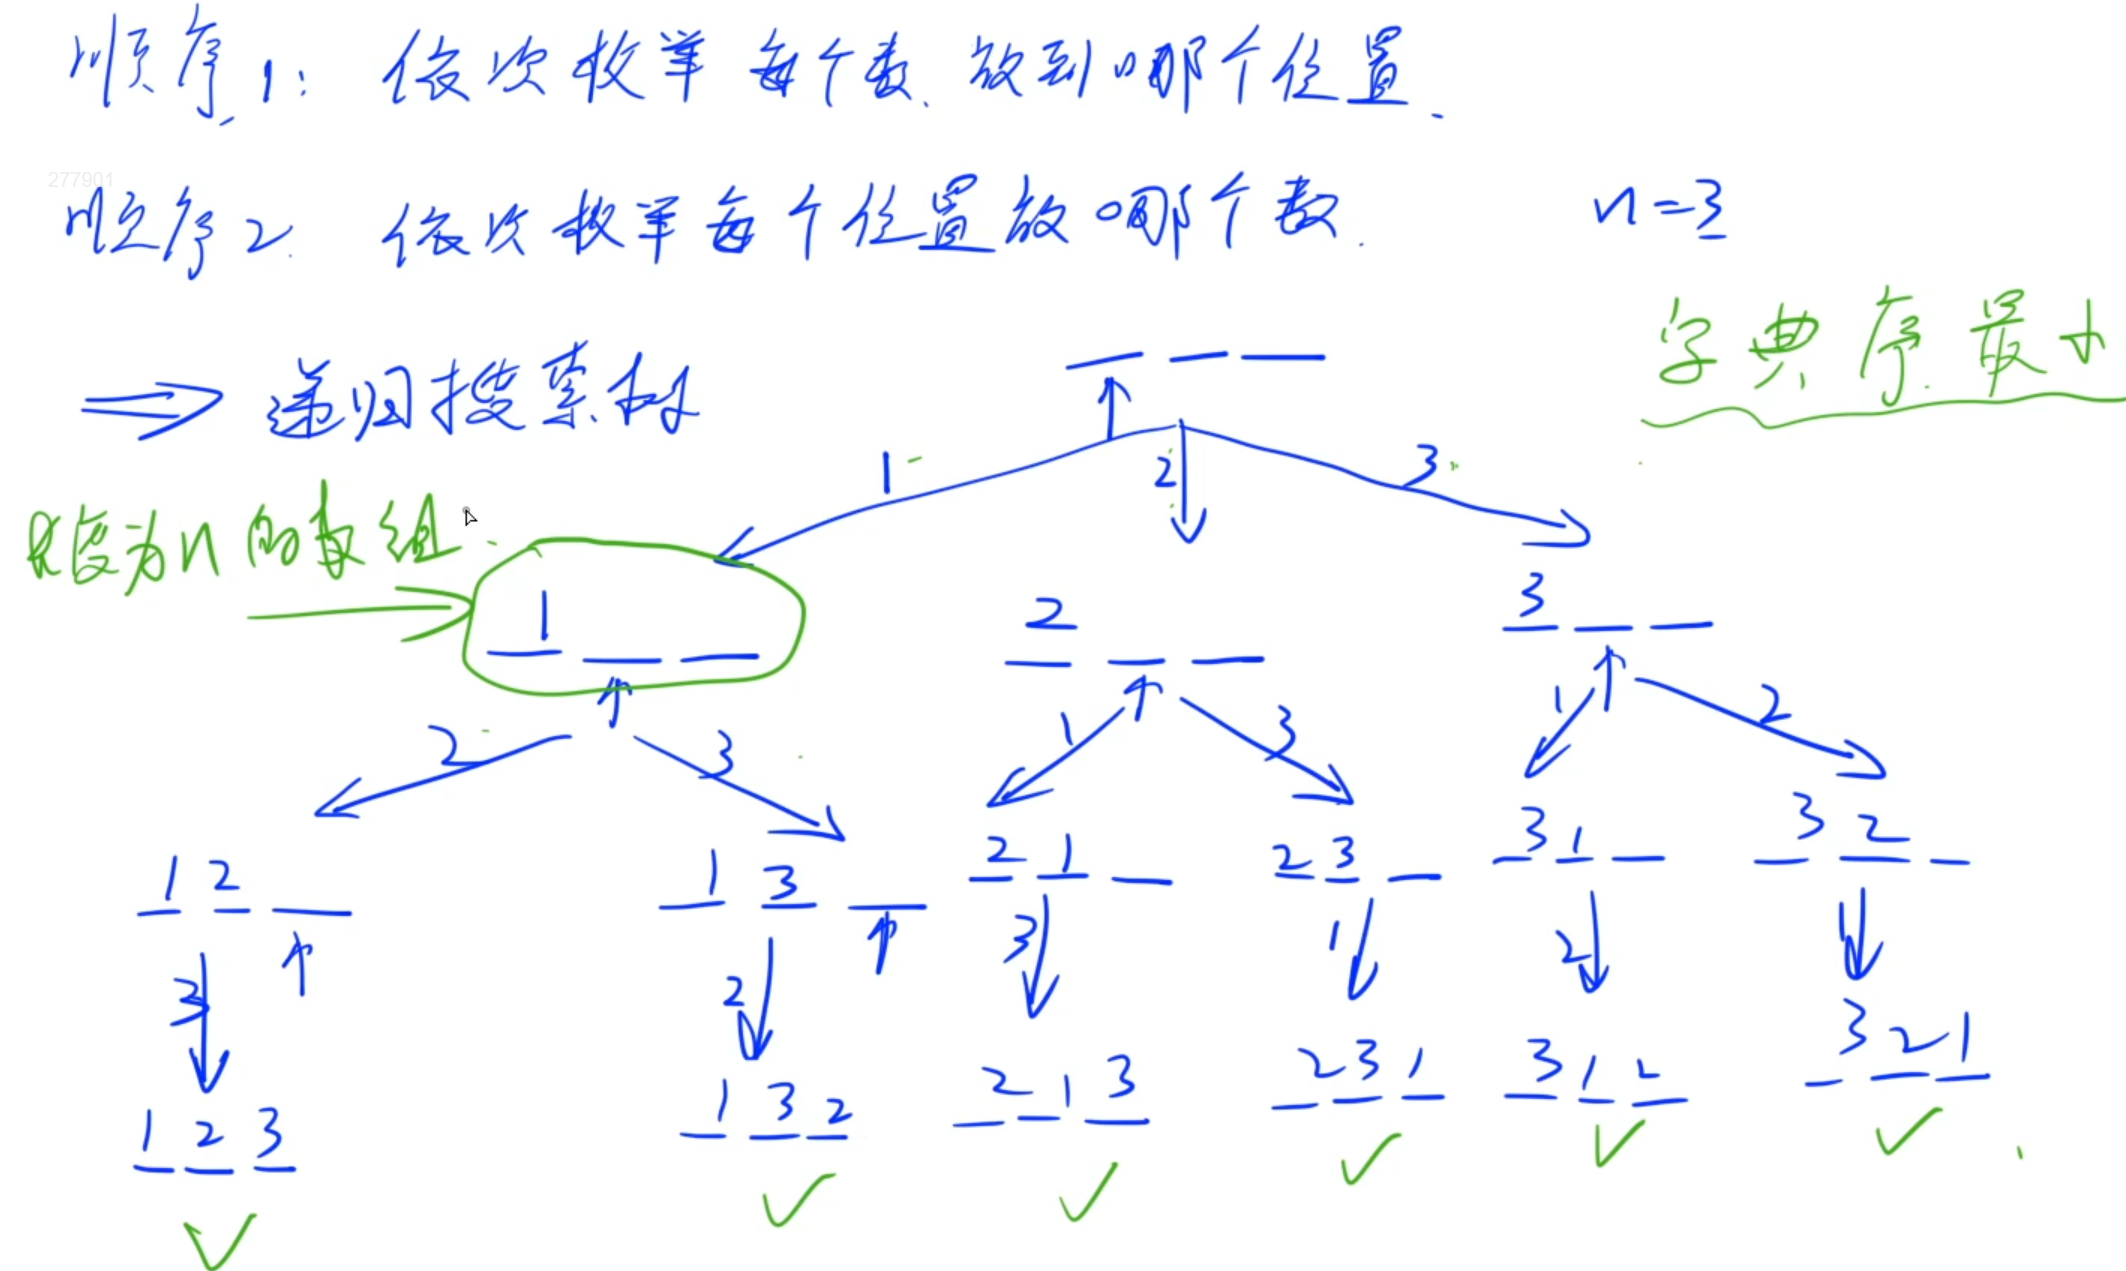 顺序1: 依次枚举每个数放到哪个位置.
277901
顺序2. 依次枚举每个位置放哪个数.
n=3
字典序最小
⇒ 递归搜索树
1 2 3
长度为n的数组
1
2
3
2 3
1 3
1 2
1 2
1 3
2 1
2 3
3 1
3 2
3 2 3 1 2 1
1 2 3
1 3 2
2 1 3
2 3 1
3 1 2
3 2 1